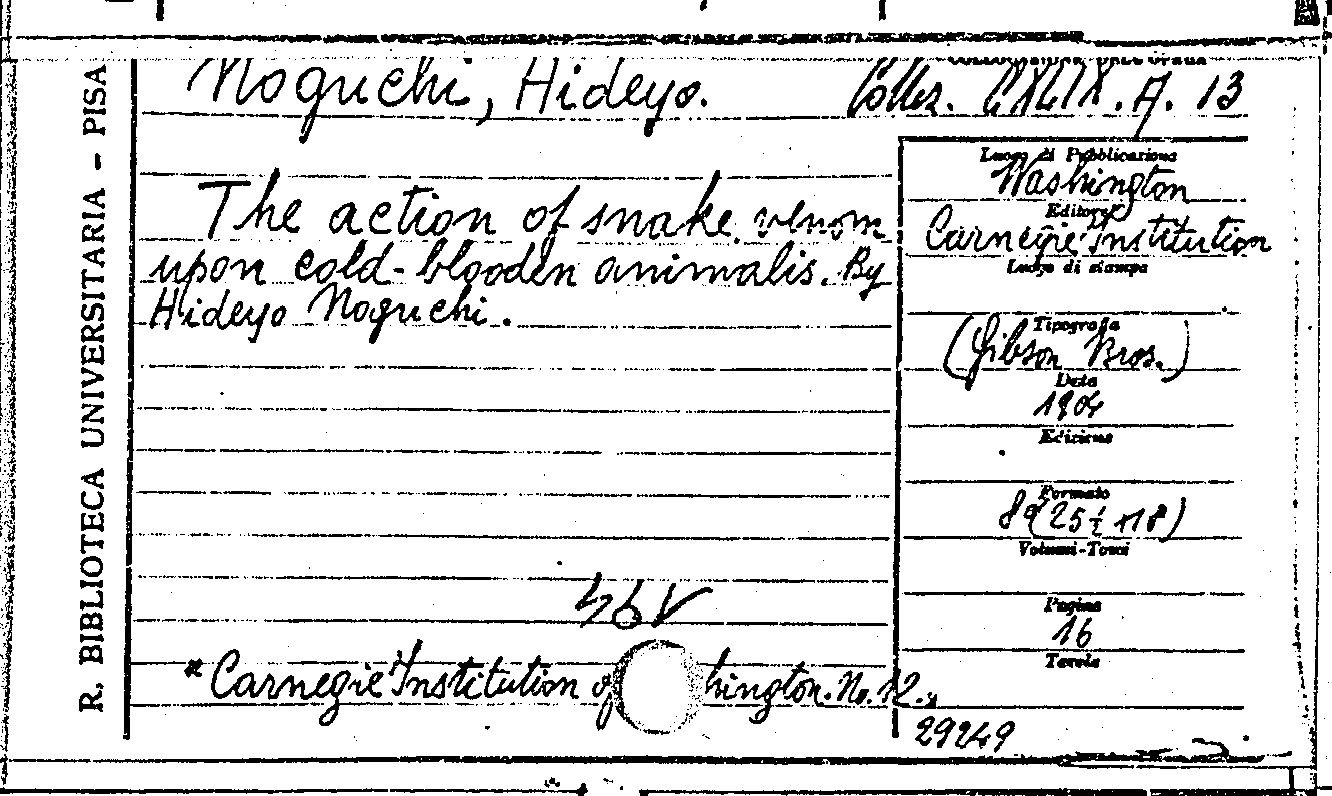 R. BIBLIOTECA UNIVERSITARIA - PISA
Noguchi, Hideyo.
COLLOCAZIONE DELL'OPERA
Colloz. CXLIX. A. 13
The action of snake venom
upon cold-blooden animalis. By
Hideyo Noguchi.
Luogo di Pubblicazione
Washington
Editore
Carnegie Institution
Luogo di stampa
Tipografia
(Gibson Bros.)
Data
1904
Edizione
Formato
8º (25½ x 18)
Volumi-Tomi
Pagine
16
Tavole
"Carnegie Institution of hington. No. 12."
29249